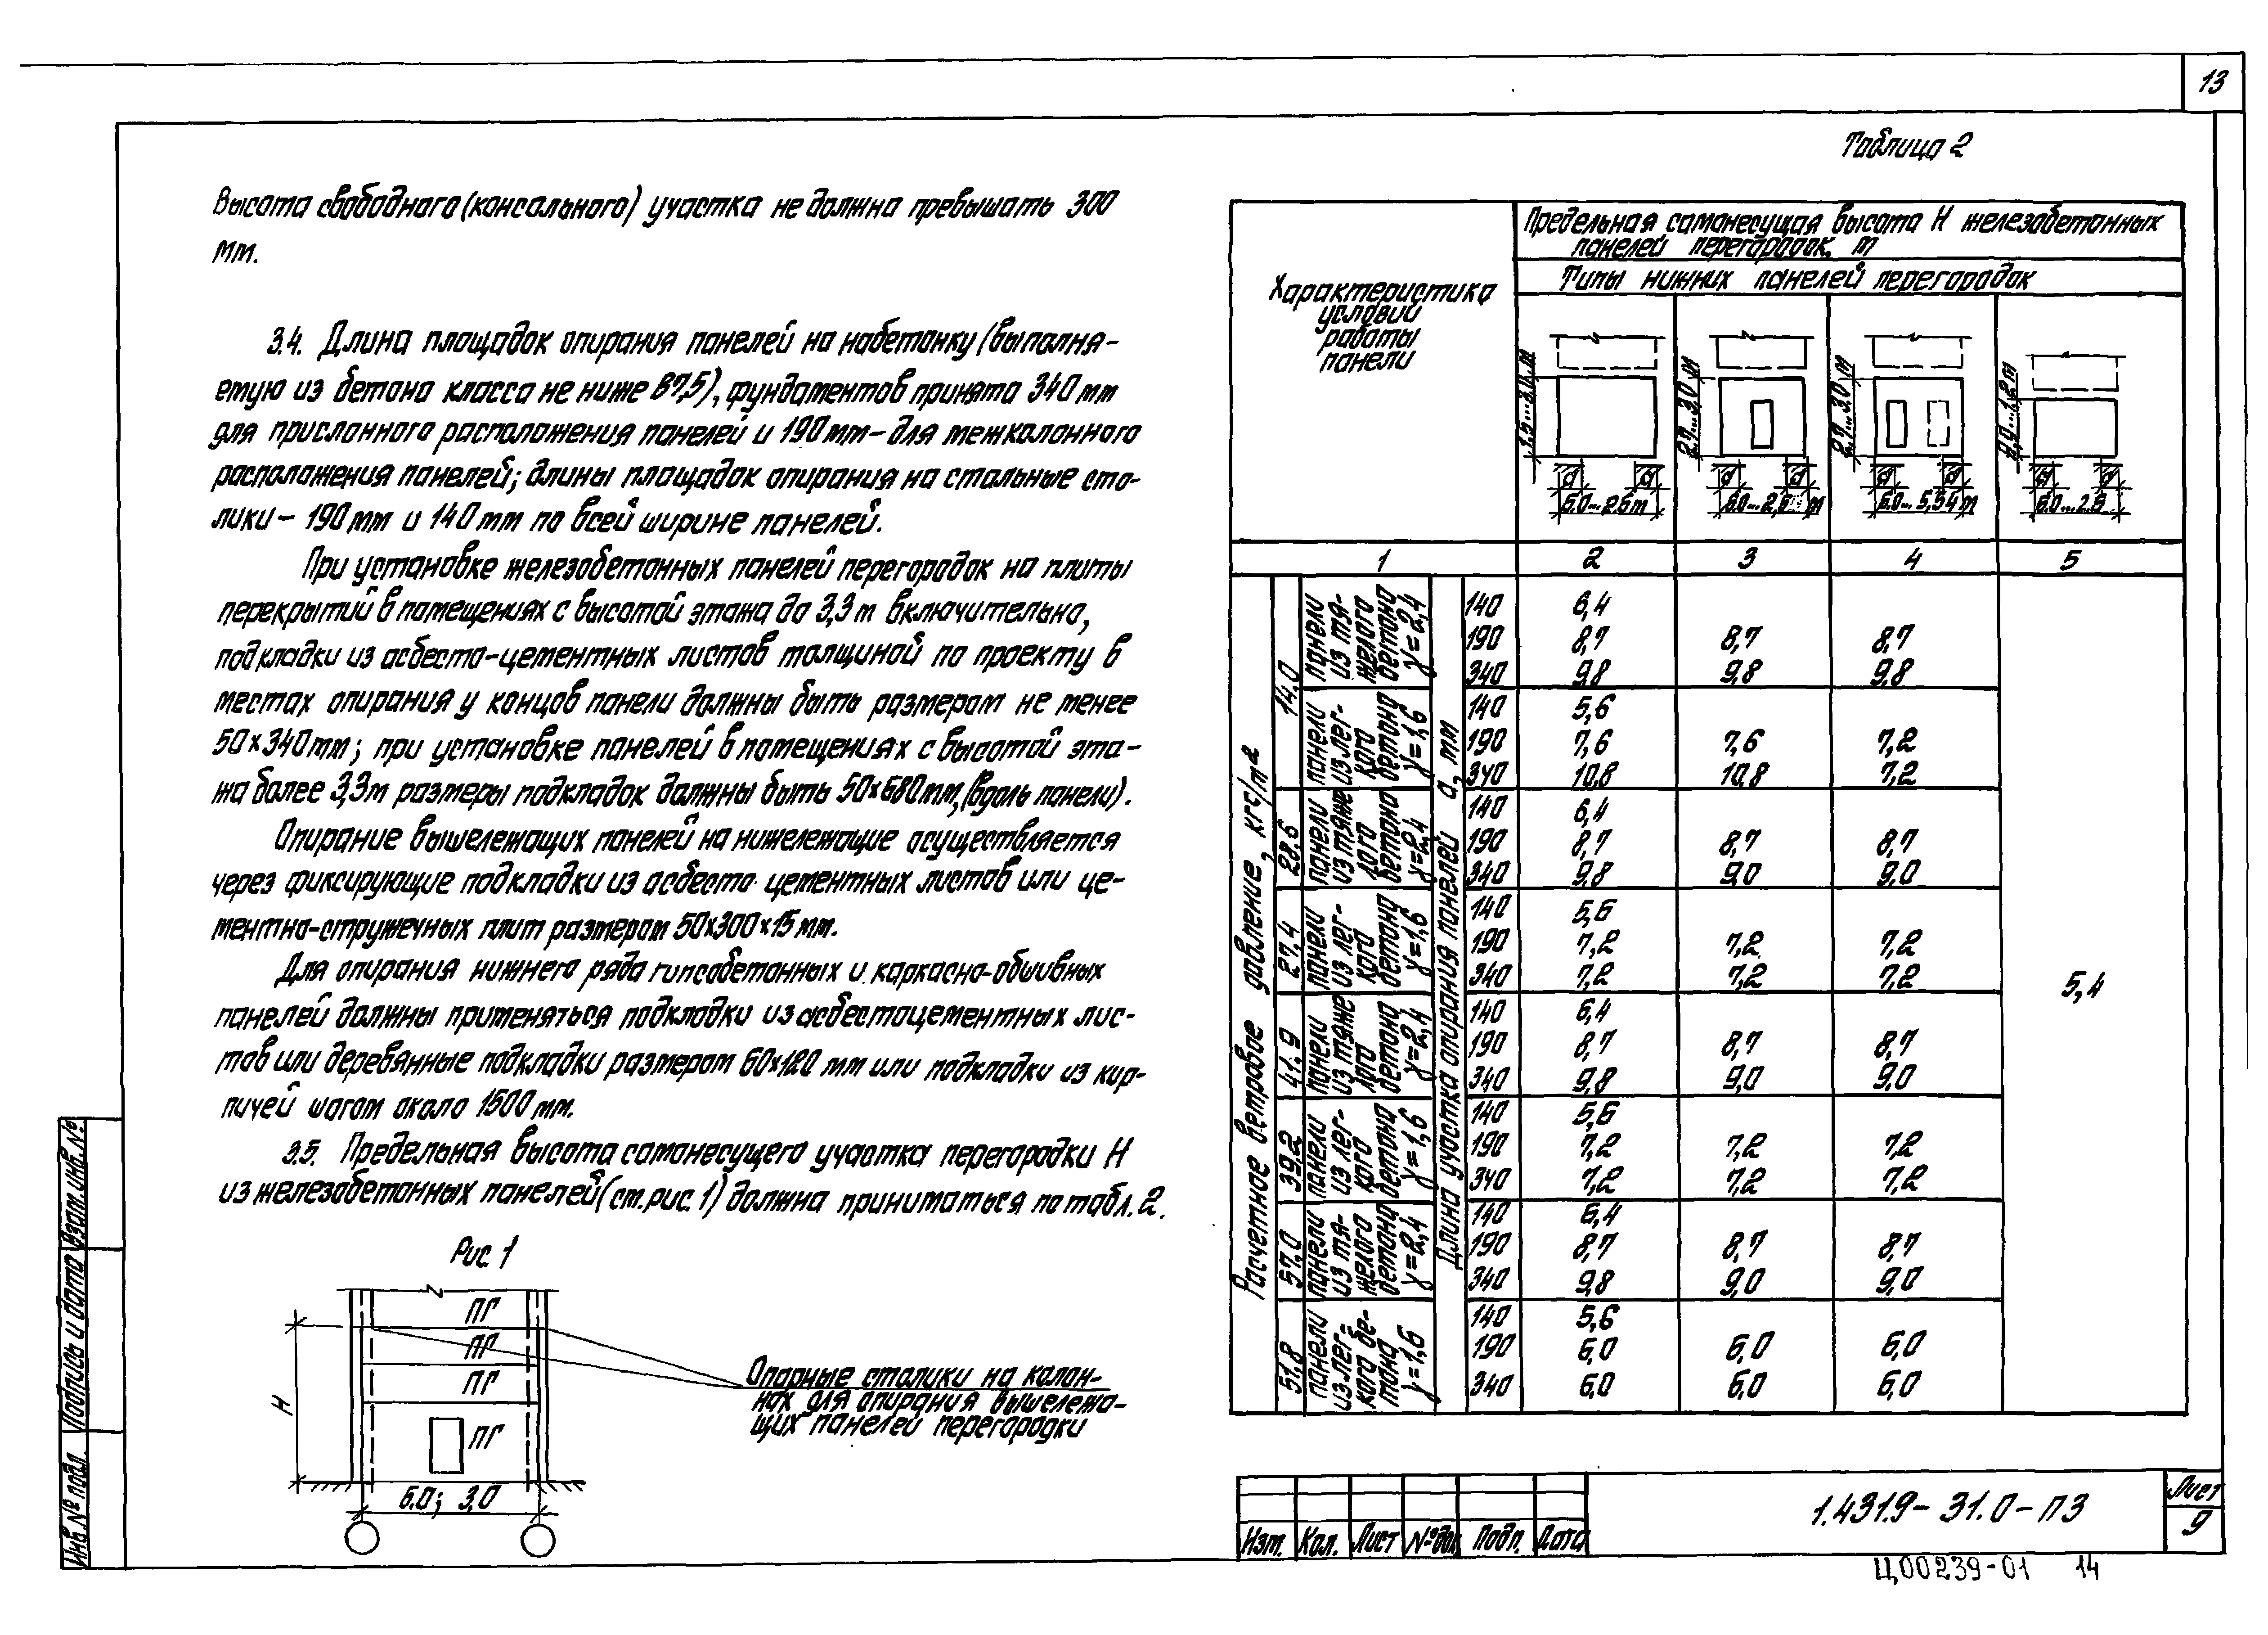 13
Высота свободного (консольного) участка не должна превышать 300
мм.
3.4. Длина площадок опирания панелей на набетонку (выполня-
емую из бетона класса не ниже В7,5), фундаментов принята 340 мм
для прислонного расположения панелей и 190 мм – для межколонного
расположения панелей; длины площадок опирания на стальные сто-
лики – 190 мм и 140 мм по всей ширине панелей.
При установке железобетонных панелей перегородок на плиты
перекрытий в помещениях с высотой этажа до 3,3 м включительно,
подкладки из асбесто-цементных листов толщиной по проекту в
местах опирания у концов панели должны быть размером не менее
50×340 мм; при установке панелей в помещениях с высотой эта-
жа более 3,3 м размеры подкладок должны быть 50×680 мм, (вдоль панели).
Опирание вышележащих панелей на нижележащие осуществляется
через фиксирующие подкладки из асбесто цементных листов или це-
ментно-стружечных плит размером 50×300×15 мм.
Для опирания нижнего ряда гипсобетонных и каркасно-обшивных
панелей должны применяться подкладки из асбестоцементных лис-
тов или деревянные подкладки размером 60×120 мм или подкладки из кир-
пичей шагом около 1500 мм.
3.5. Предельная высота самонесущего участка перегородки Н
из железобетонных панелей (см. рис. 1) должна приниматься по табл. 2.
Рис 1
ПГ
ПГ
ПГ
ПГ
Н
6.0; 3.0
Опорные столики на колон-
нах для опирания вышележа-
щих панелей перегородки
Таблица 2
Характеристика
условий
работы
панели
Предельная самонесущая высота Н железобетонных
панелей перегородок, м
Типы нижних панелей перегородок
1.5...3.0 м
а а
6.0...2.6 м
2.7...3.0 м
а а
6.0...2,6 м
2.7...3.0 м
а а
6.0...5,54 м
0,9...1,2 м
а а
6.0...2.6
1 2 3 4 5
Расчетное ветровое давление, кгс/м²
Длина участка опирания панелей а, мм
14.0
панели из тя-
желого
бетона
γ=2,4
140 6,4
190 8,7 8,7 8,7
340 9,8 9,8 9,8
панели
из лег-
кого
бетона
γ=1,6
140 5,6
190 7,6 7,6 7,2
340 10,8 10,8 7,2
28.6
панели
из тяже
лого
бетона
γ=2,4
140 6,4
190 8,7 8,7 8,7
340 9,8 9,0 9,0
27,4
панели
из лег-
кого
бетона
γ=1,6
140 5,6
190 7,2 7,2 7,2
340 7,2 7,2 7,2
5,4
41.9
панели
из тяже
лого
бетона
γ=2,4
140 6,4
190 8,7 8,7 8,7
340 9,8 9,0 9,0
39.2
панели
из лег-
кого
бетона
γ=1,6
140 5,6
190 7,2 7,2 7,2
340 7,2 7,2 7,2
57,0
панели
из тя-
желого
бетона
γ=2,4
140 6,4
190 8,7 8,7 8,7
340 9,8 9,0 9,0
51,8
панели
из лег-
кого бе-
тона
γ=1,6
140 5,6
190 6,0 6,0 6,0
340 6,0 6,0 6,0
Изм. Кол. Лист №док Подп. Дата
1.431.9-31.0-ПЗ
Лист
9
Ц00239-01 14
Инв.№ подл. Подпись и дата Взам.инв.№